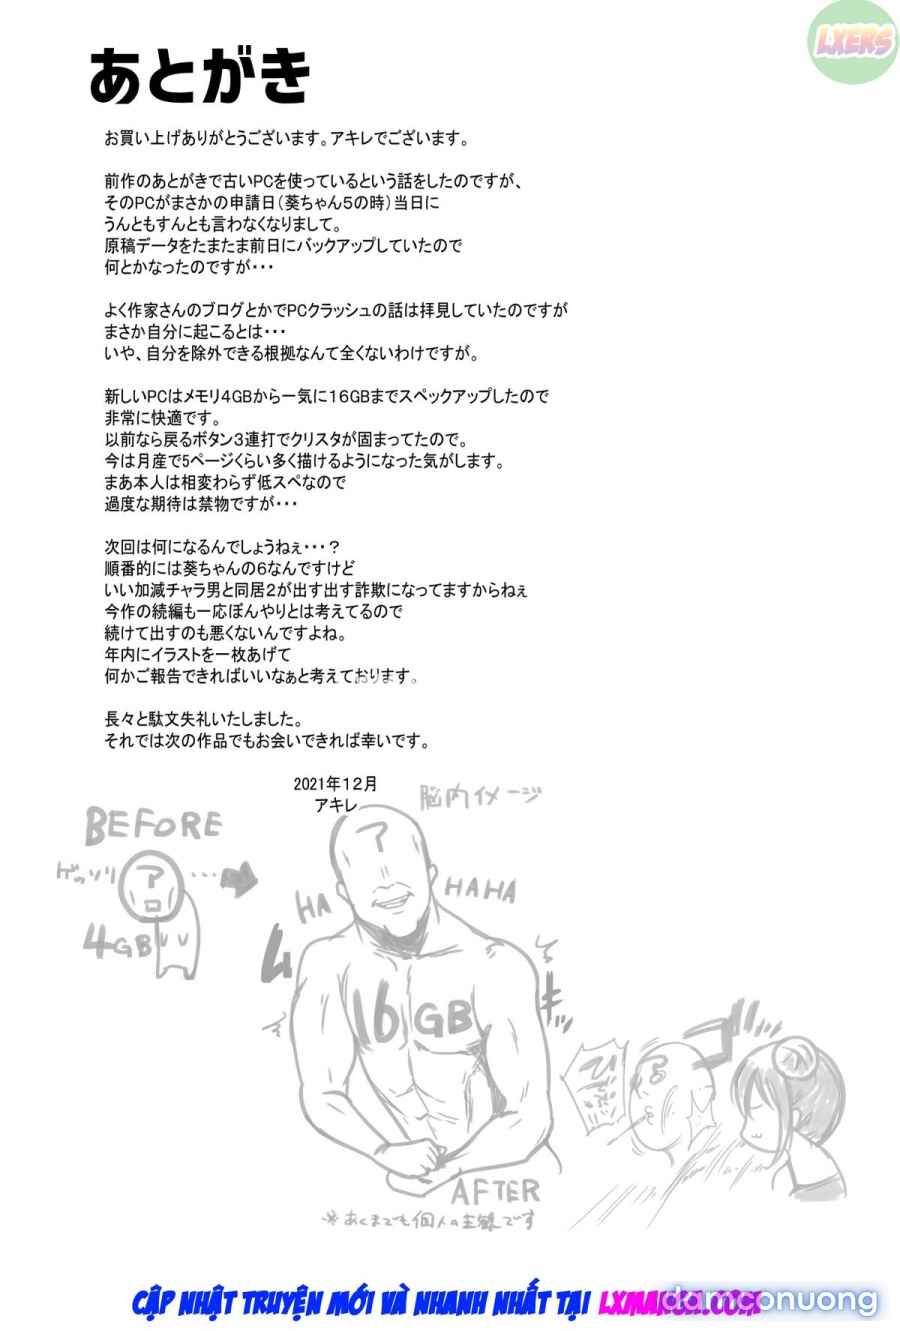 LXERS
あとがき
お買い上げありがとうございます。アキレでございます。
前作のあとがきで古いPCを使っているという話をしたのですが、
そのPCがまさかの申請日（葵ちゃん５の時）当日に
うんともすんとも言わなくなりまして。
原稿データをたまたま前日にバックアップしていたので
何とかなったのですが・・・
よく作家さんのブログとかでPCクラッシュの話は拝見していたのですが
まさか自分に起こるとは・・・
いや、自分を除外できる根拠なんて全くないわけですが。
新しいPCはメモリ４GBから一気に１６GBまでスペックアップしたので
非常に快適です。
以前なら戻るボタン３連打でクリスタが固まってたので。
今は月産で5ページくらい多く描けるようになった気がします。
まあ本人は相変わらず低スペなので
過度な期待は禁物ですが・・・
次回は何になるんでしょうねぇ・・・？
順番的には葵ちゃんの６なんですけど
いい加減チャラ男と同居２が出す出す詐欺になってますからねぇ
今作の続編も一応ぼんやりとは考えてるので
続けて出すのも悪くないんですよね。
年内にイラストを一枚あげて
何かご報告できればいいなぁと考えております。
長々と駄文失礼いたしました。
それでは次の作品でもお会いできれば幸いです。
2021年１２月
アキレ
脳内イメージ
BEFORE
ゲッソリ
?
・・・
4GB
?
HA
HAHA
ムキッ
16GB
AFTER
※あくまでも個人の主観です
CẬP NHẬT TRUYỆN MỚI VÀ NHANH NHẤT TẠI LXMANGA.COM
damconuong